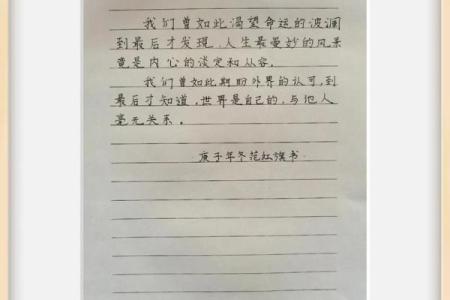 我们曾如此渴望命运的波澜
到最后才发现,人生最曼妙的风景
竟是内心的淡定和从容。
我们曾如此期盼外界的认可,到
最后才知道,世界是自己的,与他人
毫无关系。
庚子年冬范红旗书